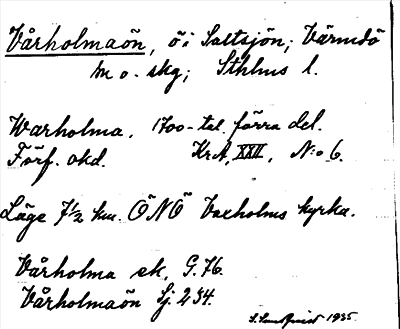 Vårholmaön, ö i Saltsjön, Värmdö
m o. skg; Sthlms l.
Warholma, 1700-tal. förra del.
Förf. okd. KrA, XXII, N:o 6.
Läge 7 1/2 km. ÖNÖ Vaxholms kyrka.
Vårholma sk, G. 76.
Vårholmaön Sj. 234.
1935